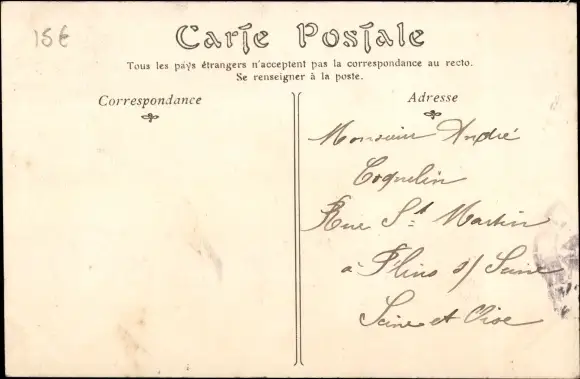 15€
Carte Postale
Tous les pays étrangers n'acceptent pas la correspondance au recto.
Se renseigner à la poste.
Correspondance
Adresse
Monsieur André
Coquelin
Rue St Martin
à Flins s/ Seine
Seine et Oise